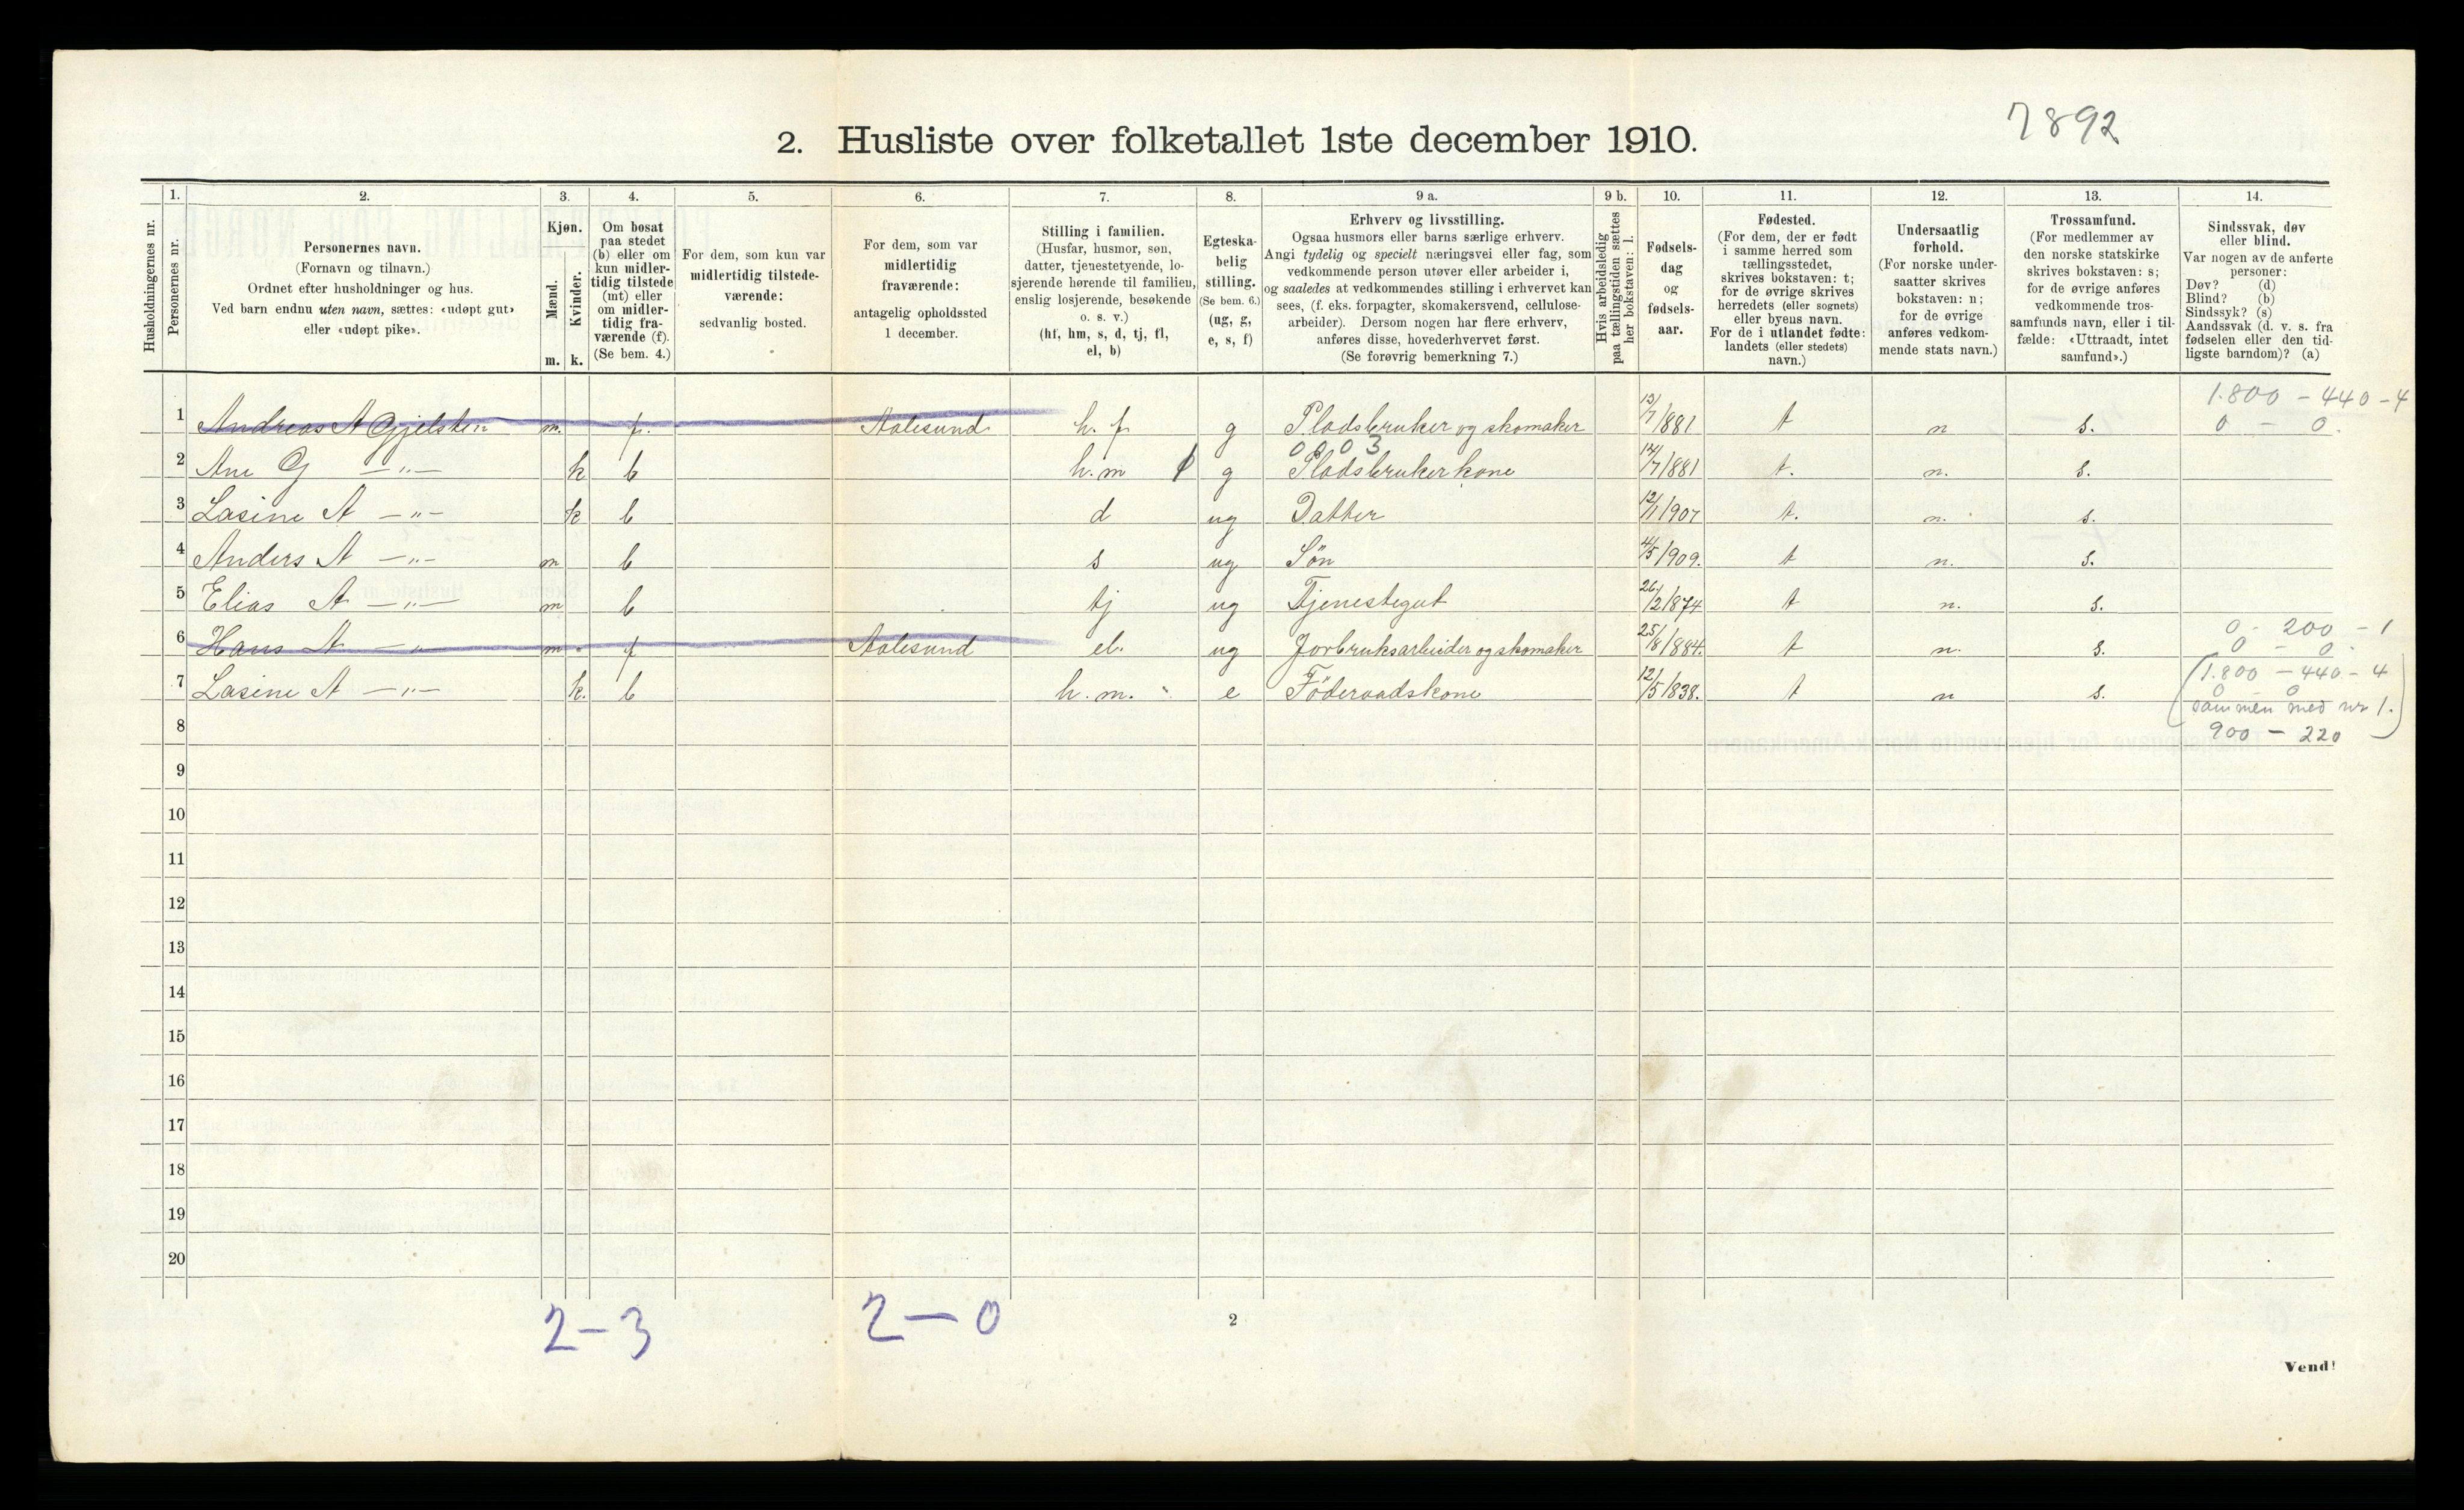 7892
2. Husliste over folketallet 1ste december 1910.
1. 2. 3. 4. 5. 6. 7. 8. 9 a. 9 b. 10. 11. 12. 13. 14.
Husholdningernes nr.
Personernes nr.
Personernes navn.
(Fornavn og tilnavn.)
Ordnet efter husholdninger og hus.
Ved barn endnu uten navn, sættes: «udøpt gut»
eller «udøpt pike».
Kjøn.
Mænd.
Kvinder.
m. k.
Om bosat
paa stedet
(b) eller om
kun midler-
tidig tilstede
(mt) eller
om midler-
tidig fra-
værende (f).
(Se bem. 4.)
For dem, som kun var
midlertidig tilstede-
værende:
sedvanlig bosted.
For dem, som var
midlertidig
fraværende:
antagelig opholdssted
1 december.
Stilling i familien.
(Husfar, husmor, søn,
datter, tjenestetyende, lo-
sjerende hørende til familien,
enslig losjerende, besøkende
o. s. v.)
(hf, hm, s, d, tj, fl,
el, b)
Egteska-
belig
stilling.
(Se bem. 6.)
(ug, g,
e, s, f)
Erhverv og livsstilling.
Ogsaa husmors eller barns særlige erhverv.
Angi tydelig og specielt næringsvei eller fag, som
vedkommende person utøver eller arbeider i,
og saaledes at vedkommendes stilling i erhvervet kan
sees, (f. eks. forpagter, skomakersvend, cellulose-
arbeider). Dersom nogen har flere erhverv,
anføres disse, hovederhvervet først.
(Se forøvrig bemerkning 7.)
Hvis arbeidsledig
paa tællingstiden sættes
her bokstaven: l.
Fødsels-
dag
og
fødsels-
aar.
Fødested.
(For dem, der er født
i samme herred som
tællingsstedet,
skrives bokstaven: t;
for de øvrige skrives
herredets (eller sognets)
eller byens navn.
For de i utlandet fødte:
landets (eller stedets)
navn.)
Undersaatlig
forhold.
(For norske under-
saatter skrives
bokstaven: n;
for de øvrige
anføres vedkom-
mende stats navn.)
Trossamfund.
(For medlemmer av
den norske statskirke
skrives bokstaven: s;
for de øvrige anføres
vedkommende tros-
samfunds navn, eller i til-
fælde: «Uttraadt, intet
samfund».)
Sindssvak, døv
eller blind.
Var nogen av de anførte
personer:
Døv? (d)
Blind? (b)
Sindssyk? (s)
Aandssvak (d. v. s. fra
fødselen eller den tid-
ligste barndom)? (a)
1.800 - 440 - 4
1 Andreas A Gjelsten m. f. Aalesund h. f g Pladsbruker og skomaker 13/7 1881 t n s. 0 - 0.
0 0 0 3
2 Ane G —"— k b h. m g Pladsbrukerkone 14/7 1881 t. n. s.
3 Lasine A —"— k b d ug Datter 12/1 1907 t. n. s.
4 Anders A —"— m b s ug Søn 4/5 1909. t n. s.
5 Elias A —"— m b tj ug Tjenestegut 26/2 1874 t n. s.
0 - 200 - 1
6 Hans A —"— m f Aalesund el. ug Jorbruksarbeider og skomaker 25/8 1884. t n. s. 0 - 0.
(1.800 - 440 - 4
7 Lasine A —"— k. b h. m. e Föderaadskone 12/5 1838. t n s. 0 - 0
sammen med nr 1.
8 900 - 220 )
9
10
11
12
13
14
15
16
17
18
19
20
2 - 3 2 - 0
2
Vend!